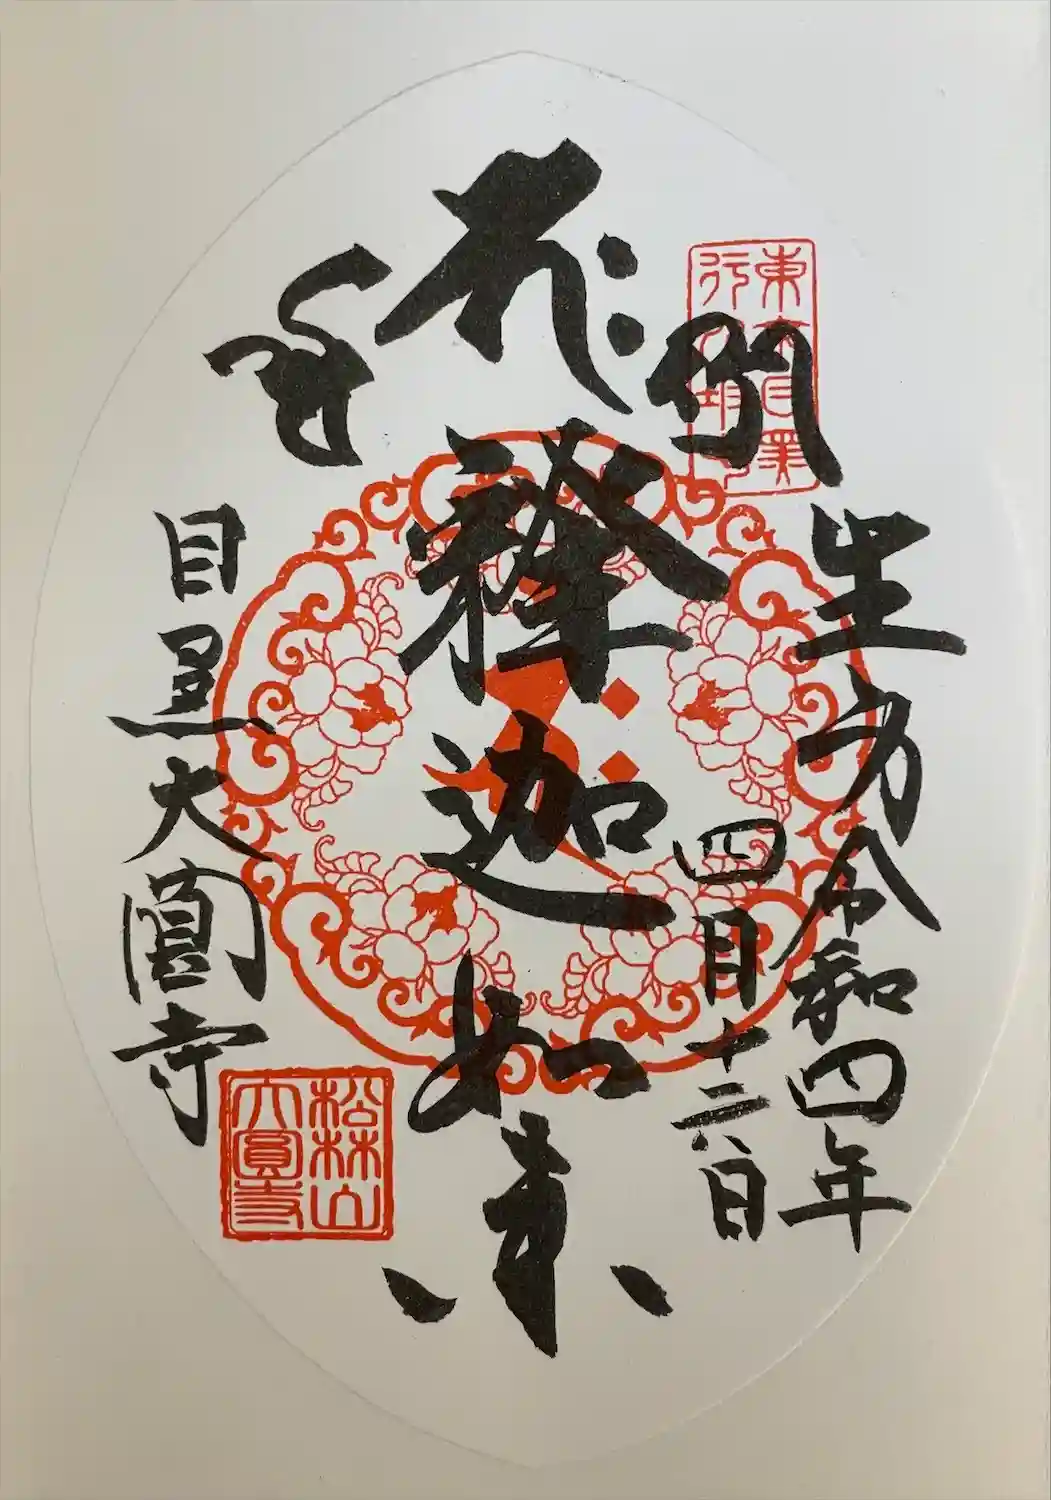 東京目黒
行人坂
令和四年
四月十
日
釋迦如来
目黒大圓寺
松林山
大圓寺